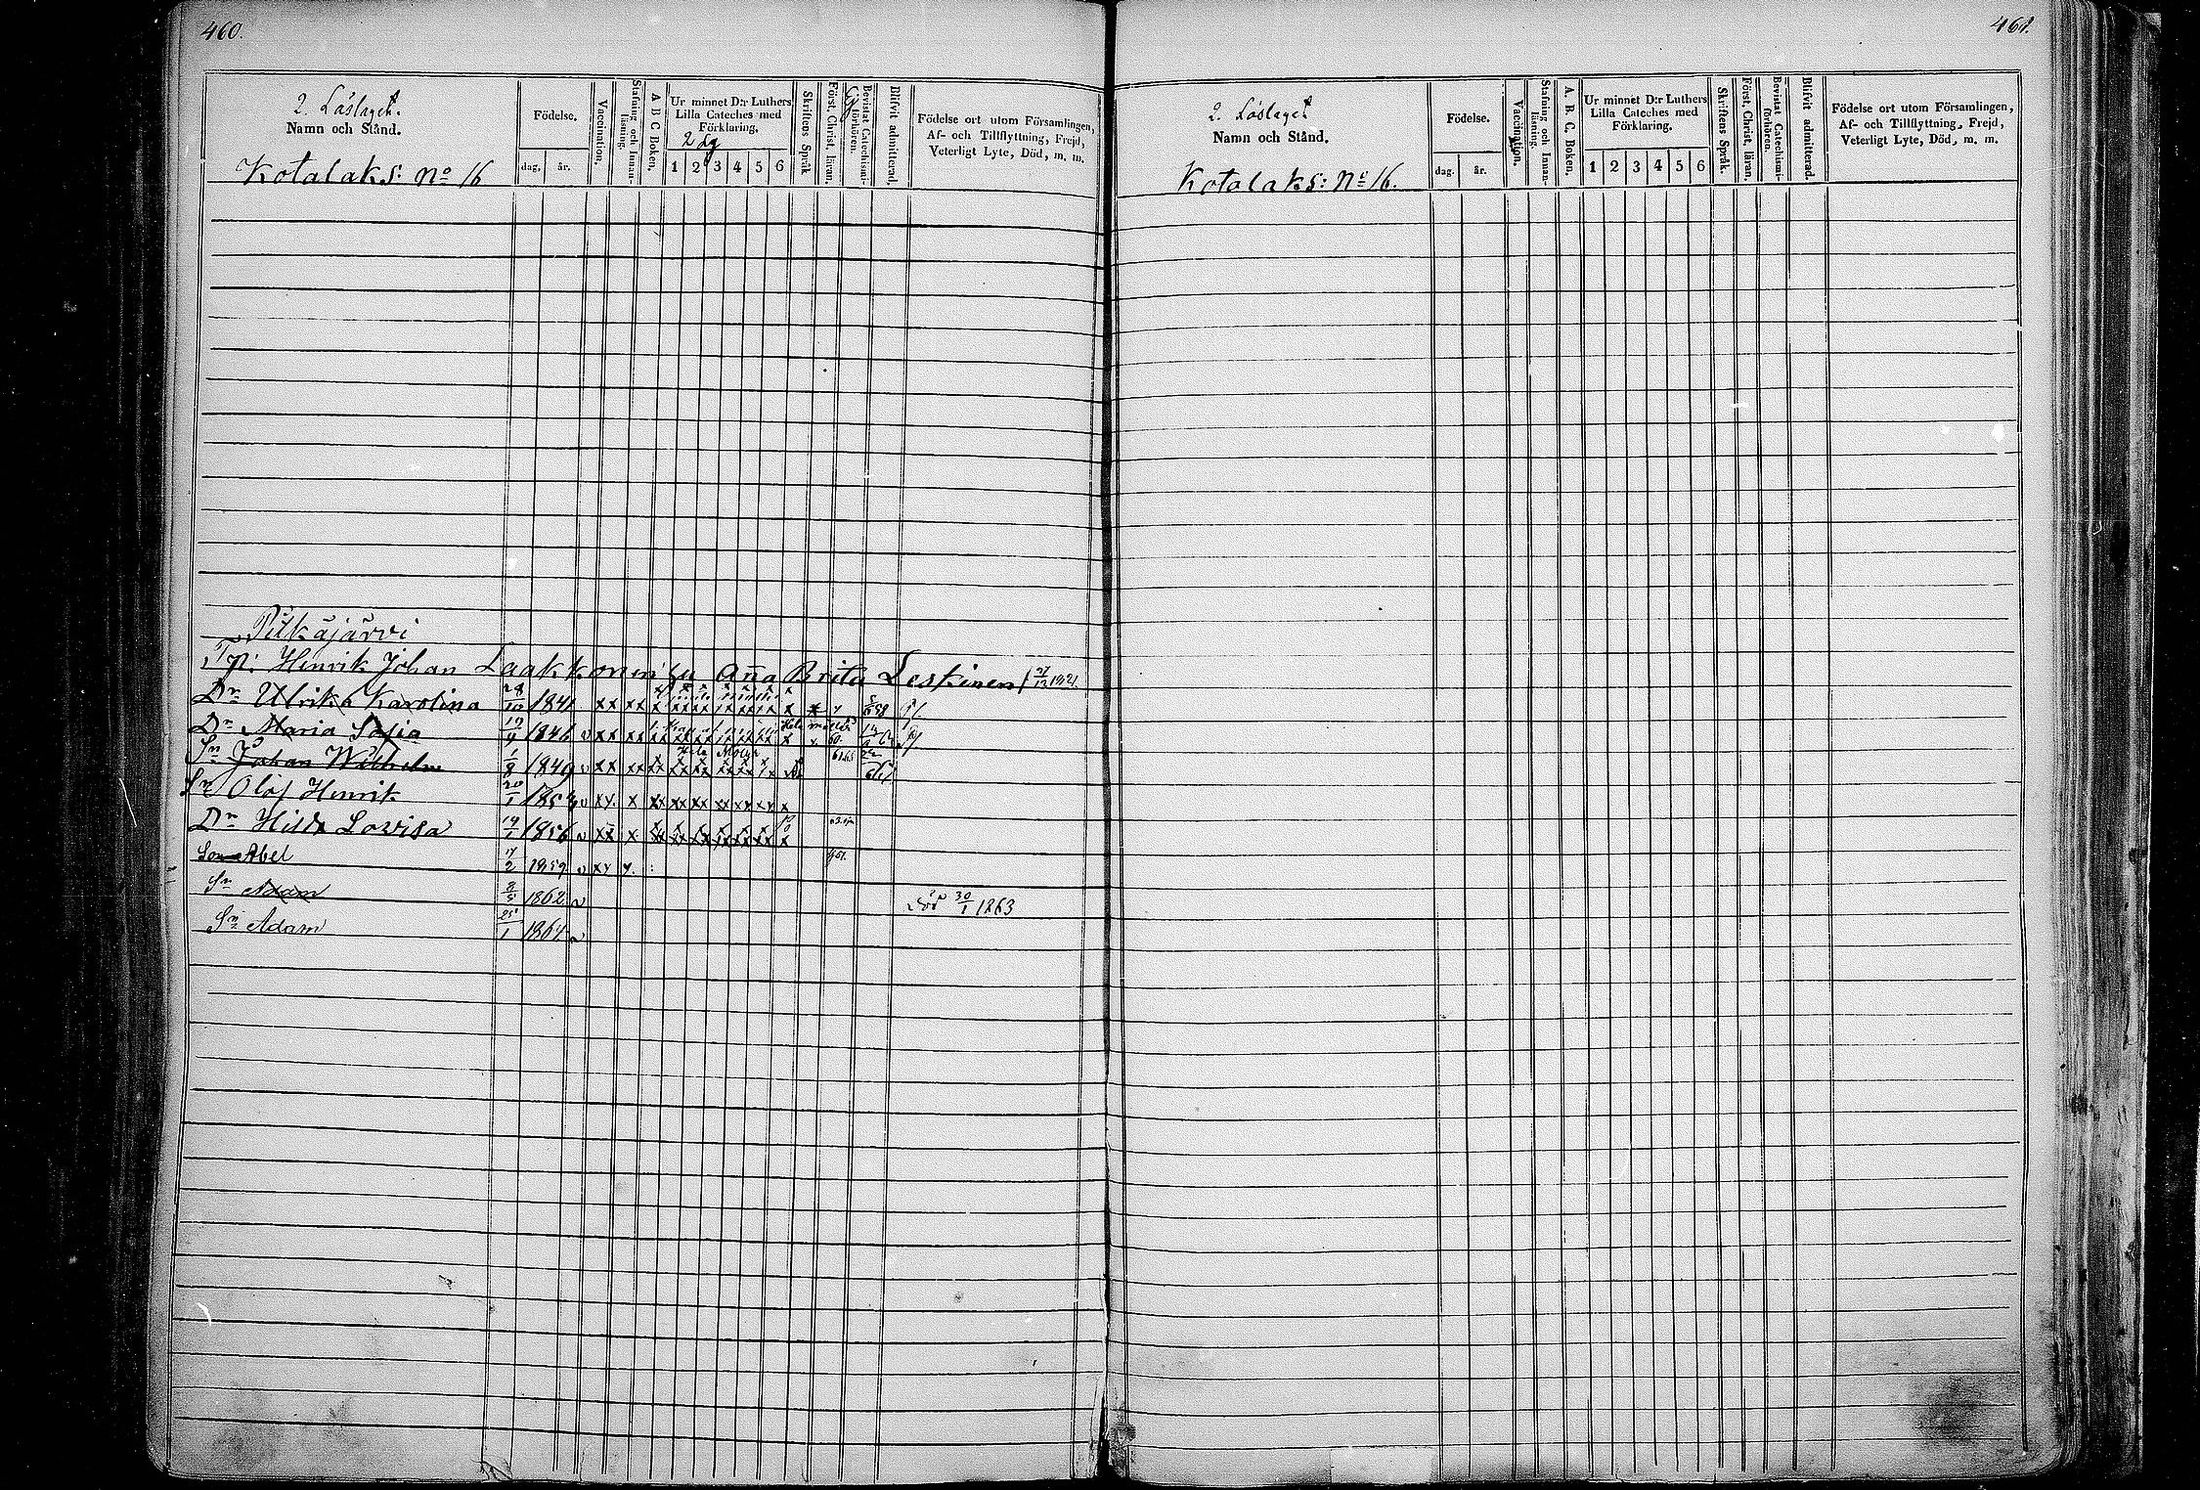 460.
2. Läslaget.
Namn och Stånd.
Kotalaks: No 16
Födelse.
dag, år.
Vaccination.
Stafning och Innan-läsning.
A B C Boken.
Ur minnet D:r Luthers
Lilla Cateches med
Förklaring.
1 2 3 4 5 6
Skriftens Språk
Först. Christ. läran.
Bevistat Catechismi-förhören.
Blifvit admitterad.
Födelse ort utom Församlingen,
Af- och Tillflyttning, Frejd,
Veterligt Lyte, Död, m. m.
Pitkäjärvi
Henrik Johan Laakkonen Aña Brita Leskinen
Dr Ulrika Karolina 28/10 1841
Dr Maria Sofia 19/4 1846
Sn Johan Wilhelm 1/8 1849
Sn Olof Henrik 20/1
Dr Hilda Lovisa 19/1 1856
Son Abel 1859
Sn Adam 8/5 1862 Död 30/1 1863
Sn Adam 25/1 1864
461.
2. Läslaget
Namn och Stånd.
Kotalaks: No 16.
Födelse.
dag. år.
Vaccination.
Stafning och Innan-läsning.
A. B. C. Boken.
Ur minnet D:r Luthers
Lilla Cateches med
Förklaring.
1 2 3 4 5 6
Skriftens Språk.
Först. Christ. läran.
Bevistat Catechismi-förhören.
Blifvit admitterad.
Födelse ort utom Församlingen,
Af- och Tillflyttning, Frejd,
Veterligt Lyte, Död, m. m.